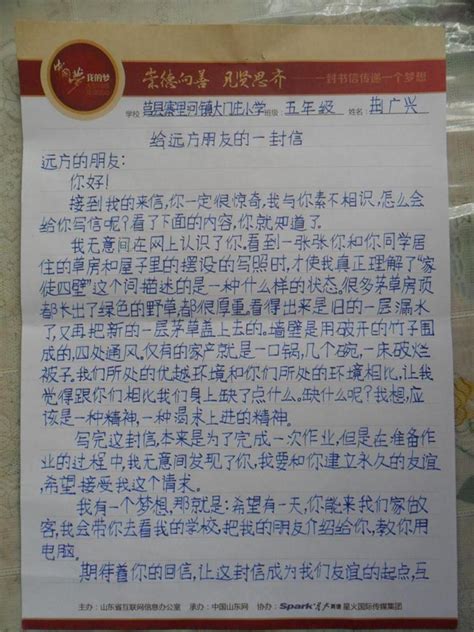 中国梦 我的梦
崇德向善 见贤思齐
一封书信传递一个梦想
学校 莒县寨里河镇大门庄小学 班级: 五年级 姓名: 荆广兴
给远方朋友的一封信
远方的朋友:
你好!
接到我的来信,你一定很惊奇,我与你素不相识,怎么会
给你写信呢?看了下面的内容,你就知道了.
我无意间在网上认识了你.看到一张张你和你同学居
住的草房和屋子里的摆设的写照时,才使我真正理解了“家
徒四壁”这个词描述的是一种什么样的状态.很多茅草房顶
都长出了绿色的野草,都很厚重.看得出来是旧的一层漏水
了,又再把新的一层茅草盖上去的.墙壁是用破开的竹子围
成的,四处通风,仅有的家产就是一口锅,几个碗,一床破烂
被子.我们所处的优越环境和你们所处的环境相比,让我
觉得跟你们相比我们身上缺了点什么.缺什么呢?我想,应
该是一种精神,一种渴求上进的精神.
写完这封信,本来是为了完成一次作业,但是在准备作
业的过程中,我无意间发现了你,我要和你建立永久的友谊
希望接受我这个请求.
我有一个梦想,那就是:希望有一天,你能来我们家做
客,我会带你去看我的学校,把我的朋友介绍给你,教你用
电脑.
期待着你的回信,让这封信成为我们友谊的起点,互
主办:山东省互联网信息办公室 承办:中国山东网 协办:Spark 星火国际传媒集团